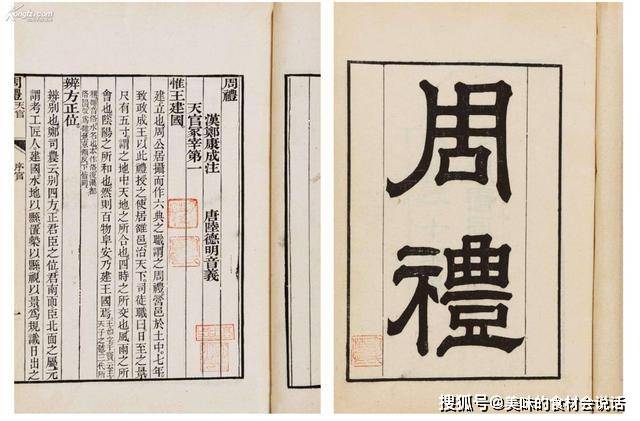 周禮
漢鄭康成注 唐陸德明音義
天官冢宰第一
惟王建國
建立也周公居攝而作六典之職謂之周禮營邑於土中七年
致政成王以此禮授之使居雒邑治天下司徒職曰日至之景
尺有五寸謂之地中天地之所合也四時之所交也風雨之所
會也陰陽之所和也然則百物阜安乃建王國焉
辨方正位
辨別也鄭司農云別四方正君臣之位君南面臣北面之屬元
謂考工匠人建國水地以縣置槷以縣視以景爲規識日出之
周禮 天官
序官
周禮
搜狐号@美味的食材会说话